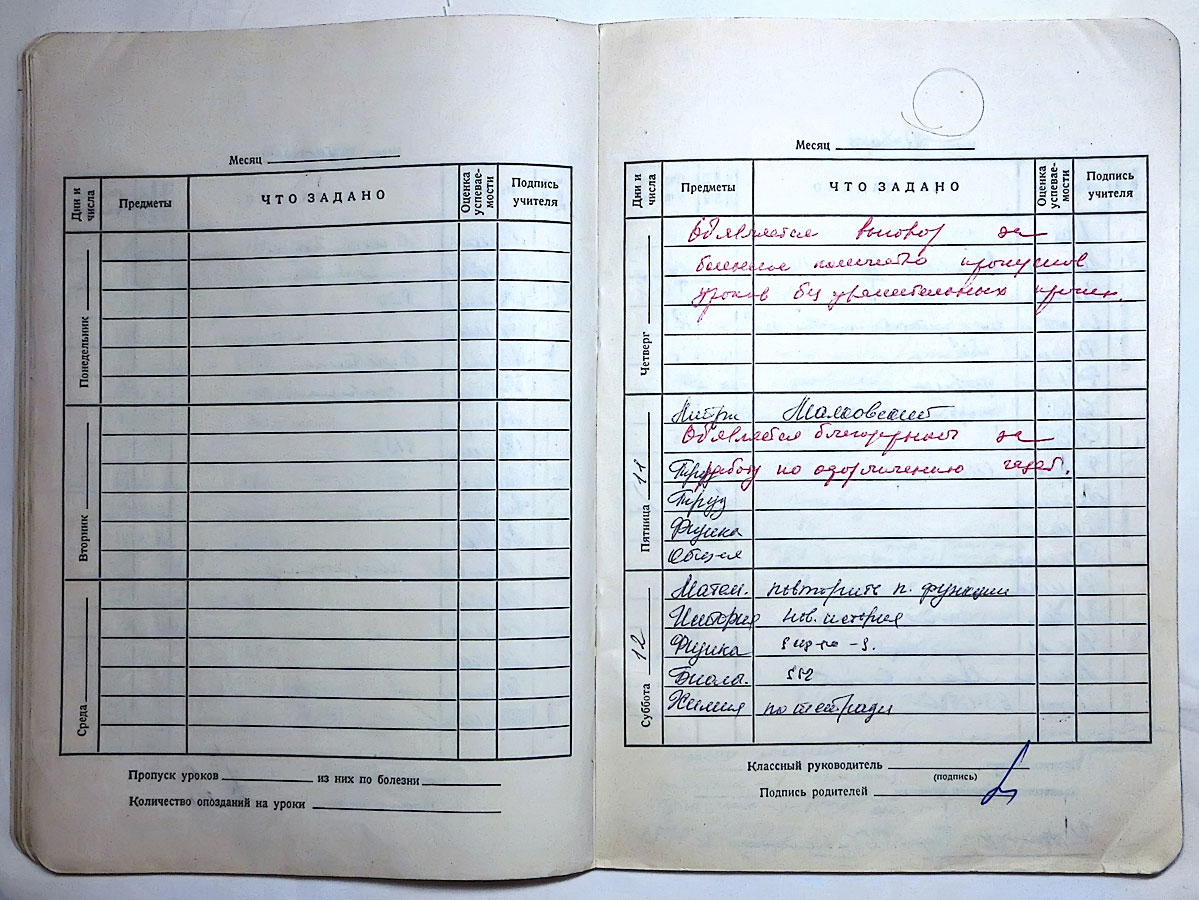 Месяц
Дни и числа
Предметы
ЧТО ЗАДАНО
Оценка успевае-мости
Подпись учителя
Понедельник
Вторник
Среда
Пропуск уроков из них по болезни
Количество опозданий на уроки
Месяц
Дни и числа
Предметы
ЧТО ЗАДАНО
Оценка успевае-мости
Подпись учителя
Четверг
Объявляется выговор за
большое количество пропусков
уроков без уважительных причин.
Пятница 11
Литер. Маяковский
Объявляется благодарность за
Труд работу по оформлению газет.
Труд
Физика
Суббота 12
Матем. повторить п. функции
История нов. история
Физика
Биолог. §52
Химия по тетради
Классный руководитель
(подпись)
Подпись родителей